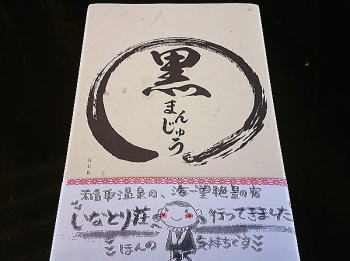 黒
まんじゅう
稲取温泉の、海一望絶景の宿
いなとり荘へ行ってきました
ほんの気持ちです